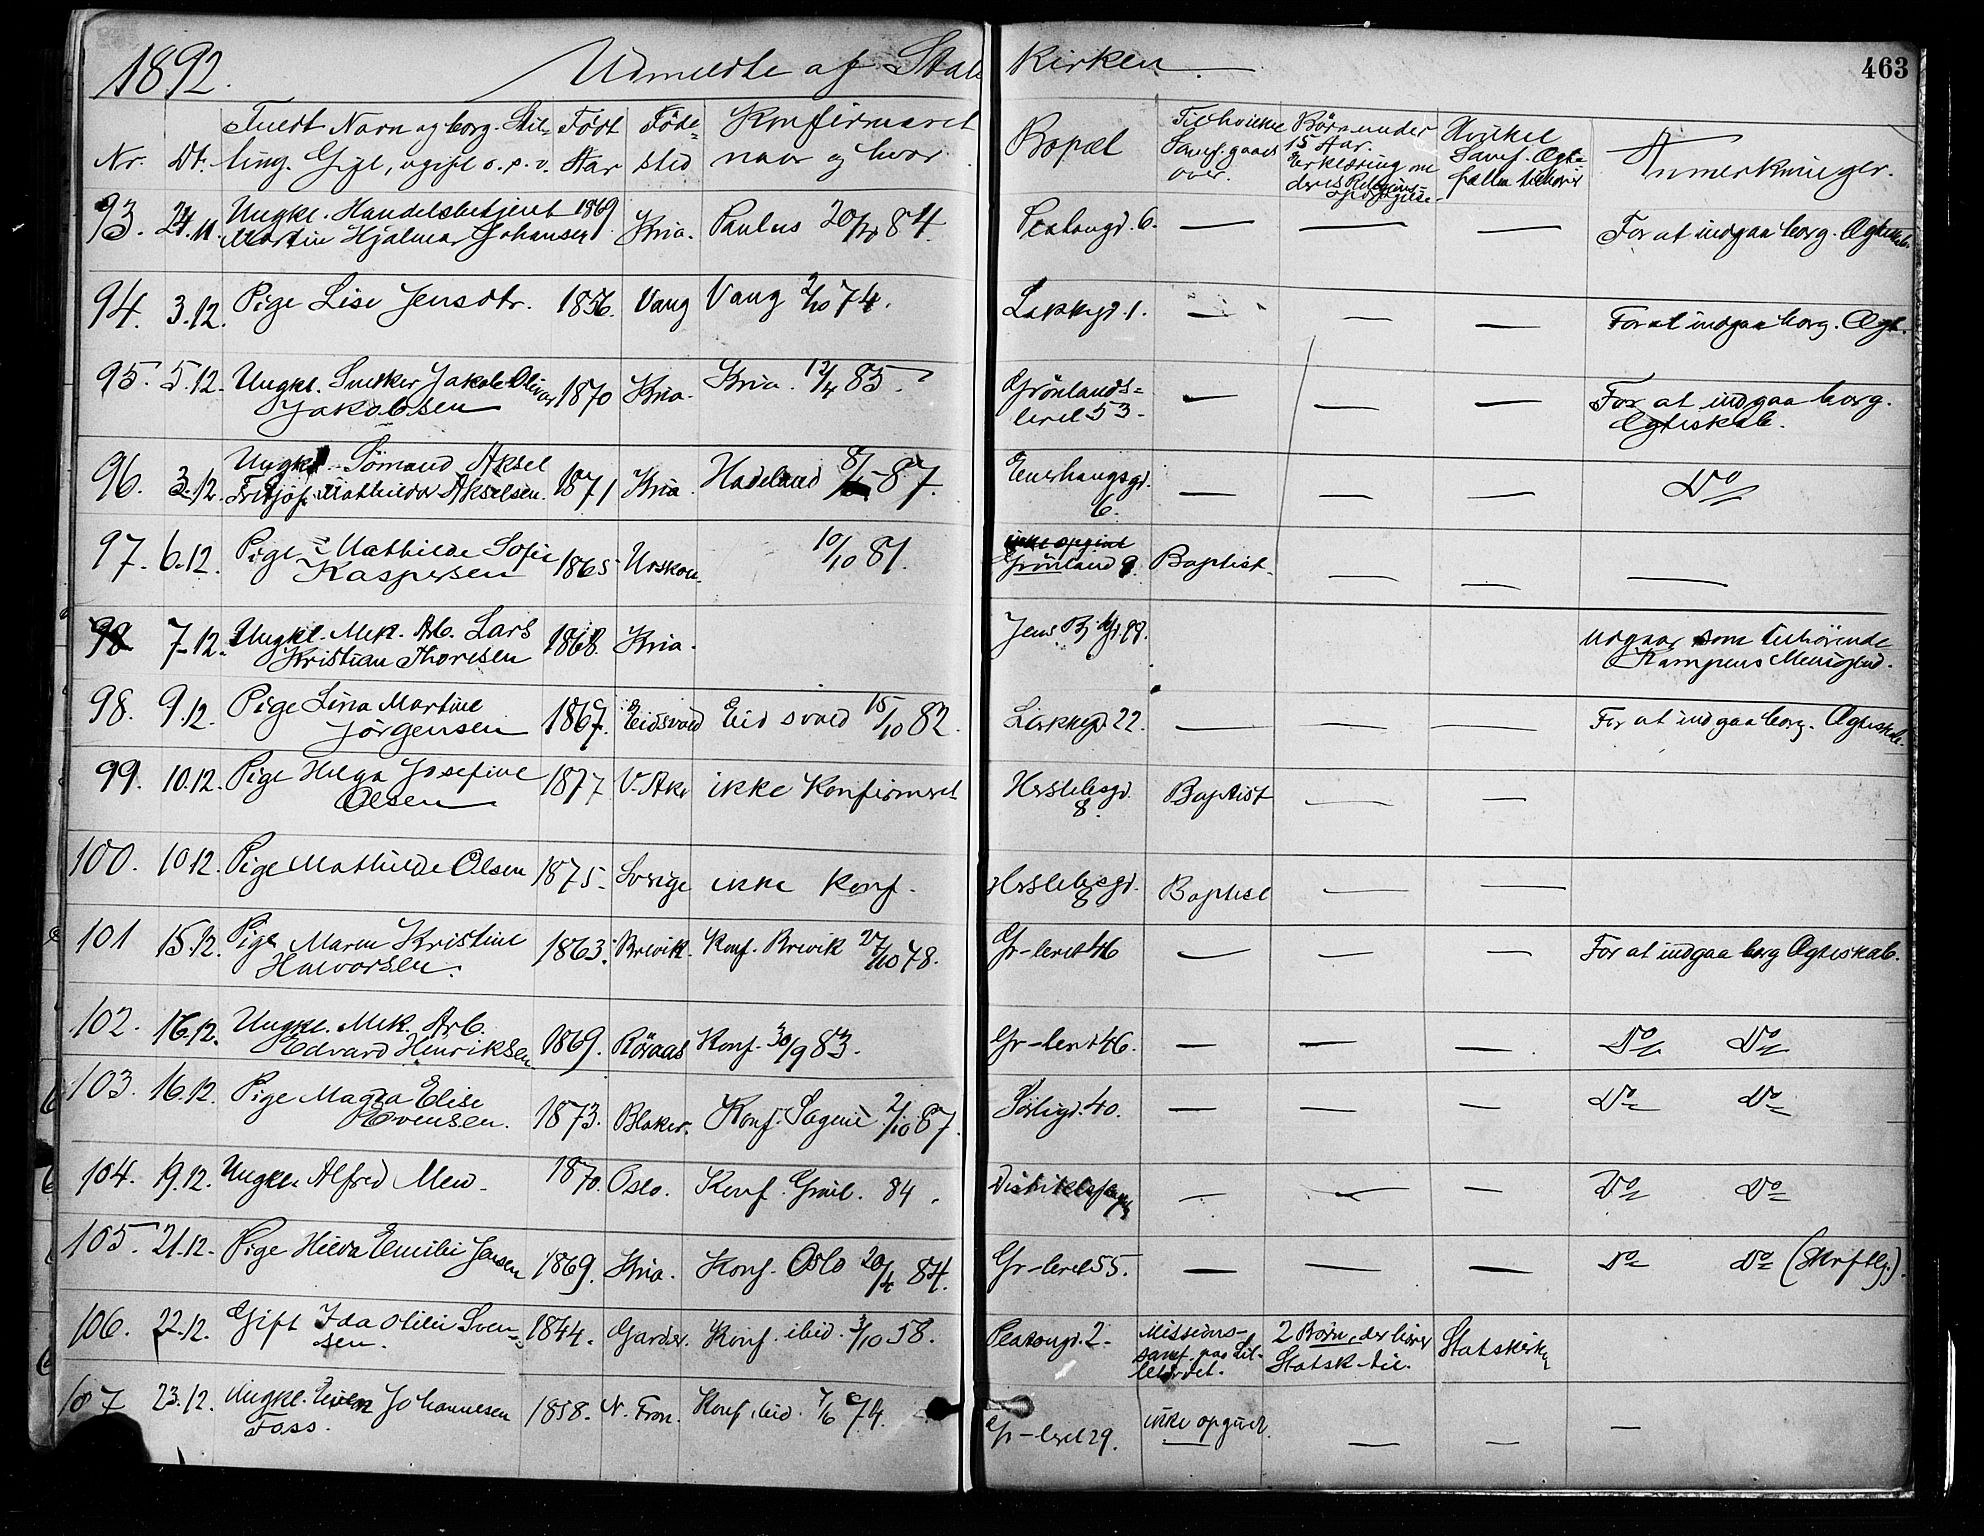 1892. Udmeldte af Stats Kirken. 463
Nr. Dt. Fuldt Navn og borg. Stil-
ling. Gift, ugift o. s. v. Født Aar Føde-
sted Konfirmeret
naar og hvor. Bopæl Til hvilken
Samf. gaaet
over. Børn under
15 Aar.
Erklæring om
deres Religions-
Hvilket
Samf. Ægte-
fællen tilhører Anmerkninger.
93. 24.11 Ungkl. Handelsbetjent 1869
Martin Hjalmar Johansen Kria. Paulus 20/4 84. Platougd. 6. — — — For at indgaa borg. Ægteskab.
94. 3.12. Pige Lise Jensdtr. 1856. Vang Vang 2/10 74. Lakkegd. 1. — — — For at indgaa borg. Ægt.
95. 5.12. Ungkl. Snedker Jakob Oliver
Jakobsen 1870 Kria. Kria. 12/4 85. Grönlands-
leret 53. — — — For at indgaa borg.
Ægteskab.
96. 3.12. Ungkl. Sömand Aksel
Fritjof Mathilder Akselsen. 1871 Kria. Hadeland 87. Enerhaugsgd.
6. — — — Do
97. 6.12. Pige Mathilde Sofie
Kaspersen 1865 Urskou. 10/10 81. ikke opgivet
Grönland 9. Baptist. — — —
98 7.12. Ungkl. Mek. Arb. Lars
Kristian Thoresen 1868. Kria. Jens Bj.gd 99. Udgaar som tilhörende
Kampens Menighed.
98. 9.12. Pige Lina Martine
Jörgensen 1867. Eidsvold Eidsvold 15/10 82. Lakkegd 22. — — — For at indgaa borg. Ægteskab.
99. 10.12. Pige Helga Josefine
Olsen 1877 V. Aker ikke Konfirmeret Herslebsgd.
8. Baptist — —
100. 10.12. Pige Mathilde Olsen 1875. Sverige ikke Konf. Herslebsgd.
8 Baptist — —
101 15.12. Pige Maren Kristine
Halvorsen. 1863. Brevik. Konf. Brevik 27/10 78. Gr-leret 46 — — — For at indgaa borg Ægteskab.
102. 16.12. Ungkl. Mek. Arb.
Edvard Henriksen 1869. Röraas Konf. 30/9 83. Gr-leret 46. — — — Do Do
103. 16.12. Pige Magda Elise
Evensen. 1873. Blaker. Konf. Sagene 2/10 87. Sörligd. 40. — — — Do Do
104. 19.12. Ungkl. Alfred Meu. 1870. Oslo. Konf. Grönl. 84. — — — Do Do
105. 21.12. Pige Hilda Emilie Jensen 1869. Kria. Konf. Oslo 20/4 84. Gr-leret 55. — — — Do Do (Skriftlg.).
106. 22.12. Gift Ida Olilie Sven-
sen. 1844. Garder. Konf. ibid. 3/10 58. Platougd. 2. Missions-
samf. paa Lil-
letordet. 2 Börn, der hörer
Statsk. til. Statskirken
107 23.12. Ungkl. Johannesen
Foss. 1858. N. Fron. Konf. ibid. 7/6 74. Gr-leret 29. ikke opgivet. — — —